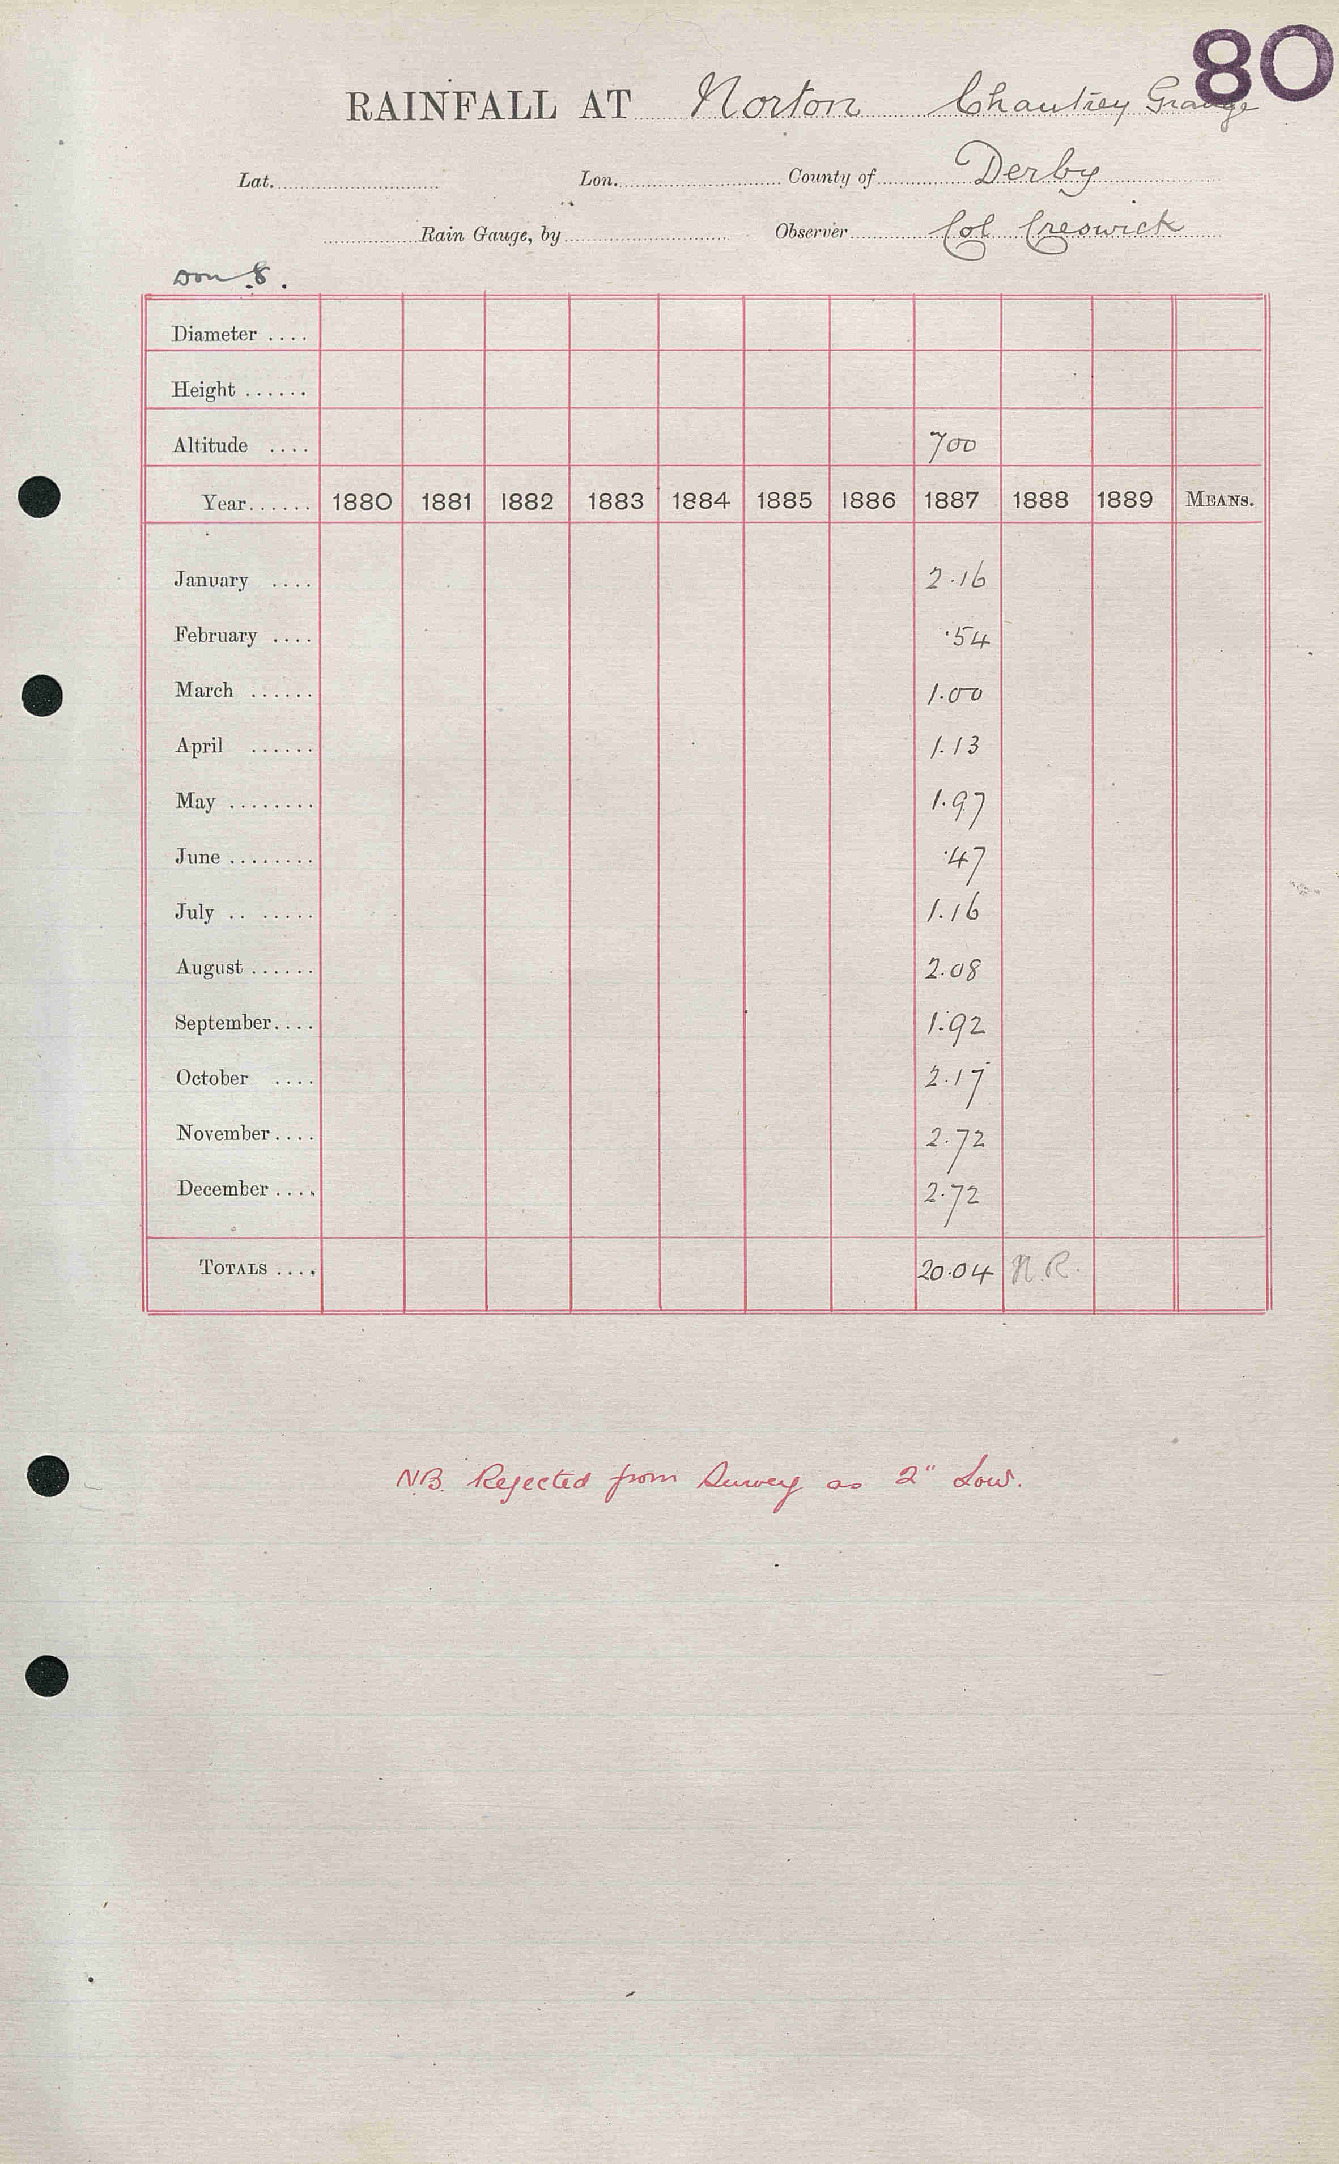 80
RAINFALL AT Norton Chantrey Grange
Lat. Lon. County of Derby
Rain Gauge, by Observer Col Creswick
Don 8.
Diameter ....
Height ......
Altitude .... 700
Year...... 1880 1881 1882 1883 1884 1885 1886 1887 1888 1889 MEANS.
January .... 2.16
February .... .54
March ...... 1.00
April ...... 1.13
May ........ 1.97
June ........ .47
July .. ...... 1.16
August ...... 2.08
September.... 1.92
October .... 2.17
November.... 2.72
December .... 2.72
TOTALS .... 20.04 N.R.
NB. Rejected from Survey as 2" Low.